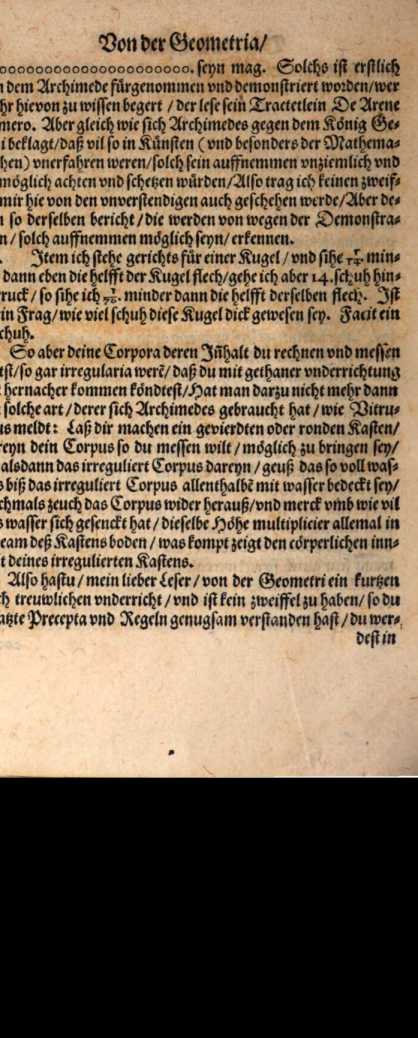 Von der Geometria/
oooooooooooooooooooo. seyn mag. Solchs ist erstlich
dem Archimede fürgenommen vnd demonstriert worden/wer
hr hievon zu wissen begert / der lese sein Tractetlein De Arene
mero. Aber gleich wie sich Archimedes gegen dem König Ge-
i beklagt/daß vil so in Künsten (vnd besonders der Mathema-
hen) vnerfahren weren/solch sein auffnemmen vnziemlich vnd
möglich achten vnd schetzen würden/Also trag ich keinen zweif-
mir hie von den vnverstendigen auch geschehen werde/Aber de-
n so derselben bericht / die werden von wegen der Demonstra-
n / solch auffnemmen möglich seyn/erkennen.
. Item ich stehe gerichts für einer Kugel / vnd sihe min-
dann eben die helfft der Kugel flech/gehe ich aber 14.schuh hin-
ruck / so sihe ich minder dann die helfft derselben flech. Ist
in Frag/wie viel schuh diese Kugel dick gewesen sey. Facit ein
chuh.
So aber deine Corpora deren Jñhalt du rechnen vnd messen
tst/so gar irregularia werẽ/daß du mit gethaner vnderrichtung
hernacher kommen köndtest/Hat man darzu nicht mehr dann
solche art / derer sich Archimedes gebraucht hat / wie Vitru-
us meldt: Laß dir machen ein gevierdten oder ronden Kasten/
reyn dein Corpus so du messen wilt / möglich zu bringen sey/
alsdann das irreguliert Corpus dareyn / geuß das so voll was-
s biß das irreguliert Corpus allenthalbẽ mit wasser bedeckt sey/
chmals zeuch das Corpus wider herauß/vnd merck vmb wie vil
s wasser sich gesenckt hat / dieselbe Höhe multiplicier allemal in
eam deß Kastens boden / was kompt zeigt den cörperlichen inn-
t deines irregulierten Kastens.
Also hastu / mein lieber Leser / von der Geometri ein kurtzen
ch treuwlichen vnderricht / vnd ist kein zweiffel zu haben/ so du
atzte Precepta vnd Regeln genugsam verstanden hast / du wer-
dest in